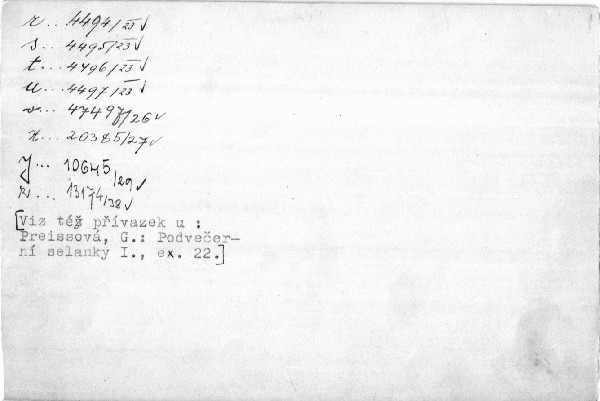 r... 4494/23 √
s... 4495/23 √
t... 4496/23 √
u... 4497/23 √
v... 47497/26 √
x... 20385/27 √
y... 10645/29 √
z... 13174/38 √
[Viz též přívazek u :
Preissová, G.: Podvečer-
ní selanky I., ex. 22.]